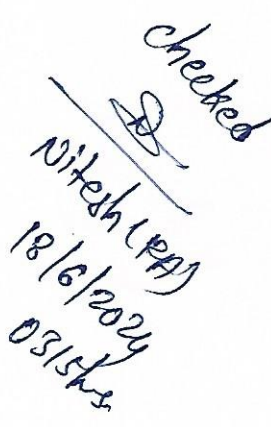 checked
Nitesh (PA)
18/6/2024
0315hrs.